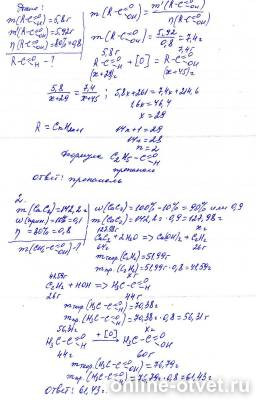 Дано:
m(R-C=O-H)=5,8г
m'(R-C=O-OH)=5,92г
η(R-C=O-OH)=80%=0,8
R-C=O-H - ?
m(R-C=O-OH) = m'(R-C=O-OH) / η(R-C=O-OH)
m(R-C=O-OH) = 5,92 / 0,8 = 7,4г
5,8г 7,4г
R-C=O-H + [O] = R-C=O-OH
(x+29)г (x+45)г
5,8 / x+29 = 7,4 / x+45 ; 5,8x+261=7,4x+214,6
1,6x=46,4
x=29
R = CnH2n+1 14n+1=29
14n=28
n=2
Формула C2H5-C=O-H
пропаналь
Ответ: пропаналь
2.
m(CaC2)=142,2г
w(прим)=10%=0,1
η=80%=0,8
m(CH3-C=O-OH)-?
w(CaC2)=100%-10%=90% или 0,9
m(CaC2)=142,2г·0,9=127,98г
127,98г xг
CaC2+2H2O => Ca(OH)2+C2H2
64г 26г
mтеор.(C2H2)=51,99г
mпр.(C2H2)=51,99г·0,8=41,59г
41,59г xг
C2H2 + HOH => H3C-C=O-H
26г 44г
mтеор.(H3C-C=O-H)=70,38г
mпр.(H3C-C=O-H)=70,38г·0,8=56,31г
56,31г xг
H3C-C=O-H + [O] => H3C-C=O-OH
44г 60г
mтеор.(H3C-C=O-OH)=76,79г
mпр.(H3C-C=O-OH)=76,79г·0,8=61,43г
Ответ: 61,43г
online-otvet.ru